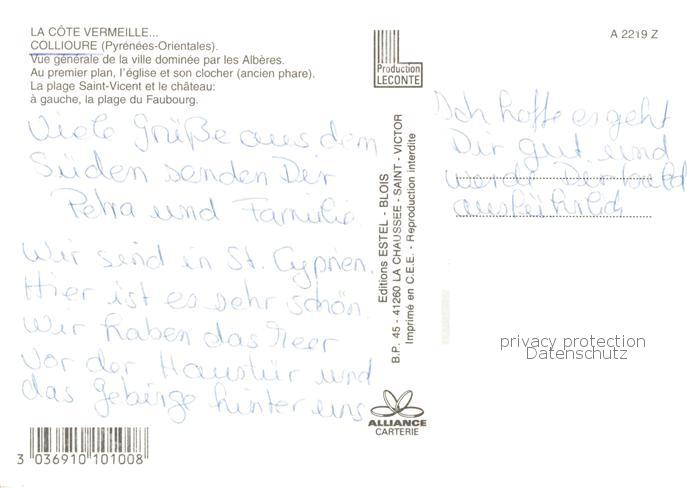 LA CÔTE VERMEILLE...
COLLIOURE (Pyrénées-Orientales).
Vue générale de la ville dominée par les Albères.
Au premier plan, l'église et son clocher (ancien phare).
La plage Saint-Vicent et le château:
à gauche, la plage du Faubourg.
Viele Grüße aus dem
Süden senden Dir
Petra und Familie.
Wir sind in St. Cyprien.
Hier ist es sehr schön.
Wir haben das Meer
vor der Haustür und
das Gebirge hinter uns
3 036910 101008
Production
LECONTE
Editions ESTEL - BLOIS
B.P. 45 - 41260 LA CHAUSSEE - SAINT - VICTOR
Imprimé en C.E.E. - Reproduction interdite
ALLIANCE
CARTERIE
A 2219 Z
Ich hoffe es geht
Dir gut und
werde Dir bald
ausführlich
privacy protection
Datenschutz